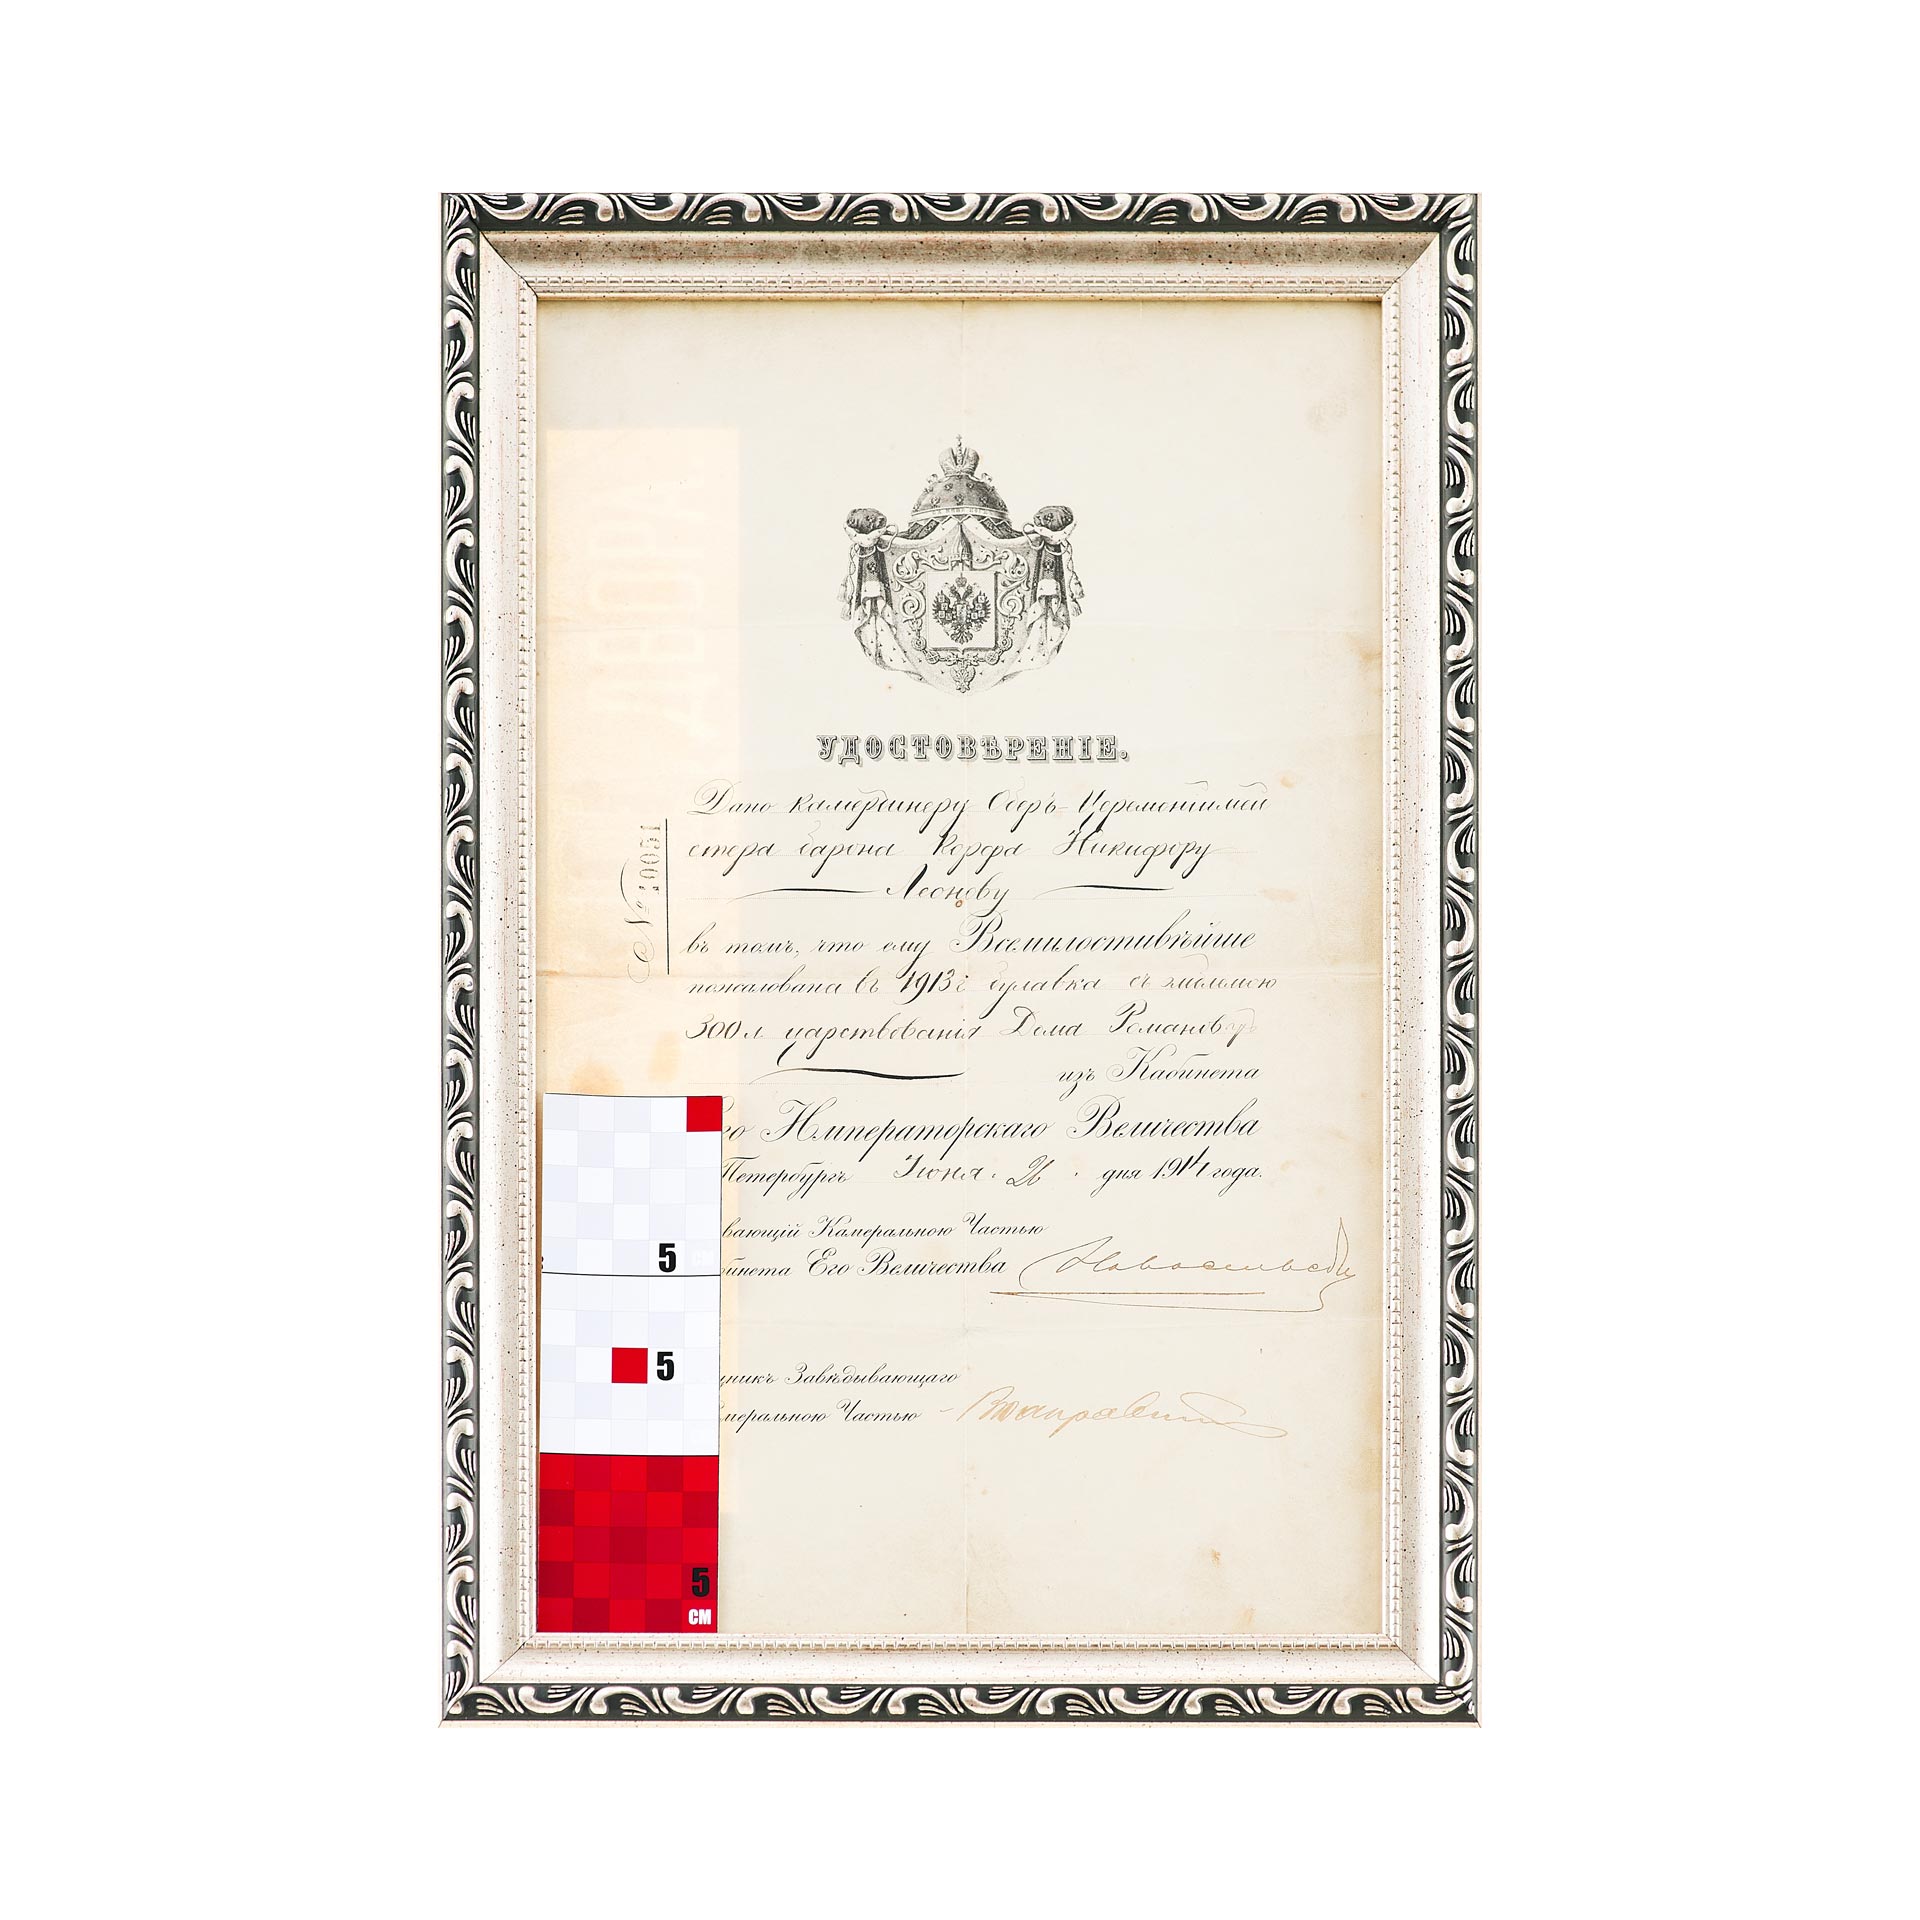 УДОСТОВѢРЕНІЕ.
Дано камердинеру Оберъ-Церемоніймей
стера барона Корфа Никифору
Леонову
въ томъ, что ему Всемилостивѣйше
пожалована въ 1913 г булавка съ эмблемою
300 л царствованія Дома Романовыхъ
изъ Кабинета
го Императорскаго Величества
Петербургъ Іюня 26 дня 1914 года.
вающій Камеральною Частью
бинета Его Величества
щникъ Завѣдывающаго
меральною Частью
№ 10051
5
5
5
СМ